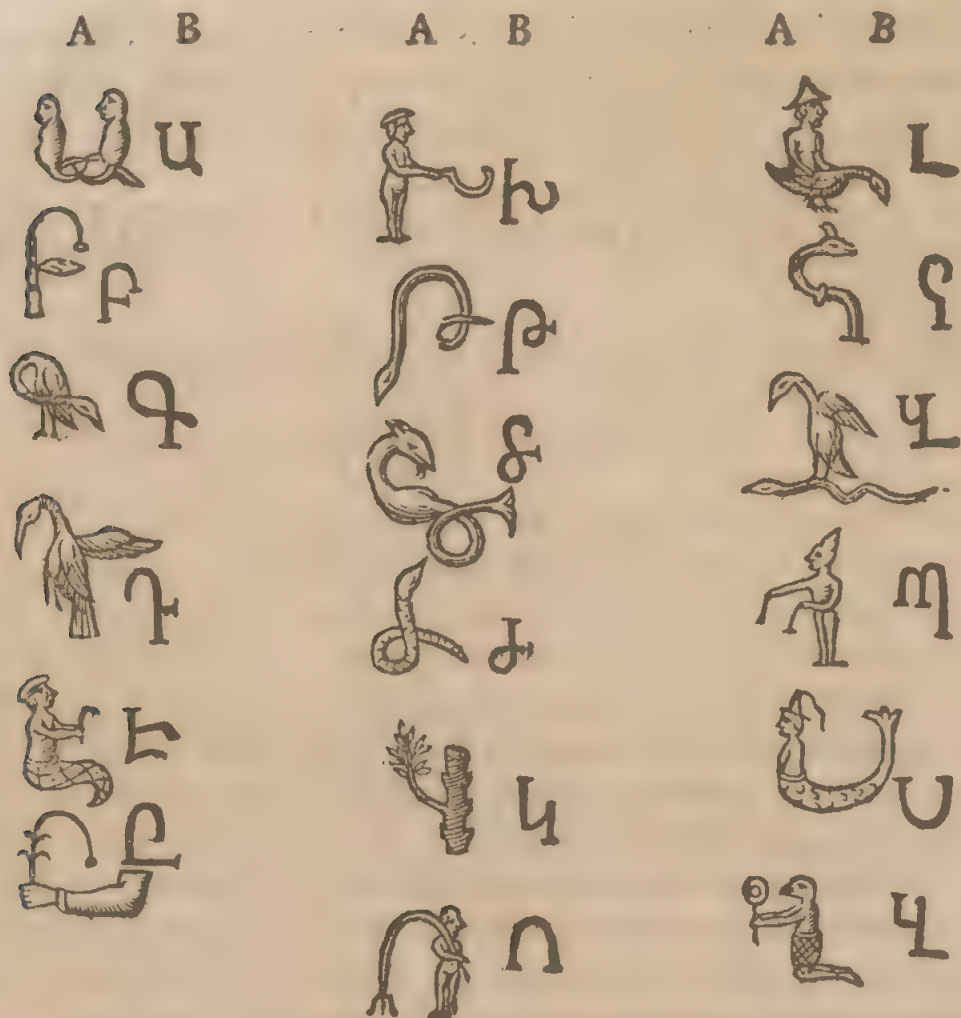 A B
Ա
Բ
Գ
Դ
Է
Ը
A B
Խ
Թ
Կ
Ո
A B
Լ
Վ
Պ
Ս
Վ